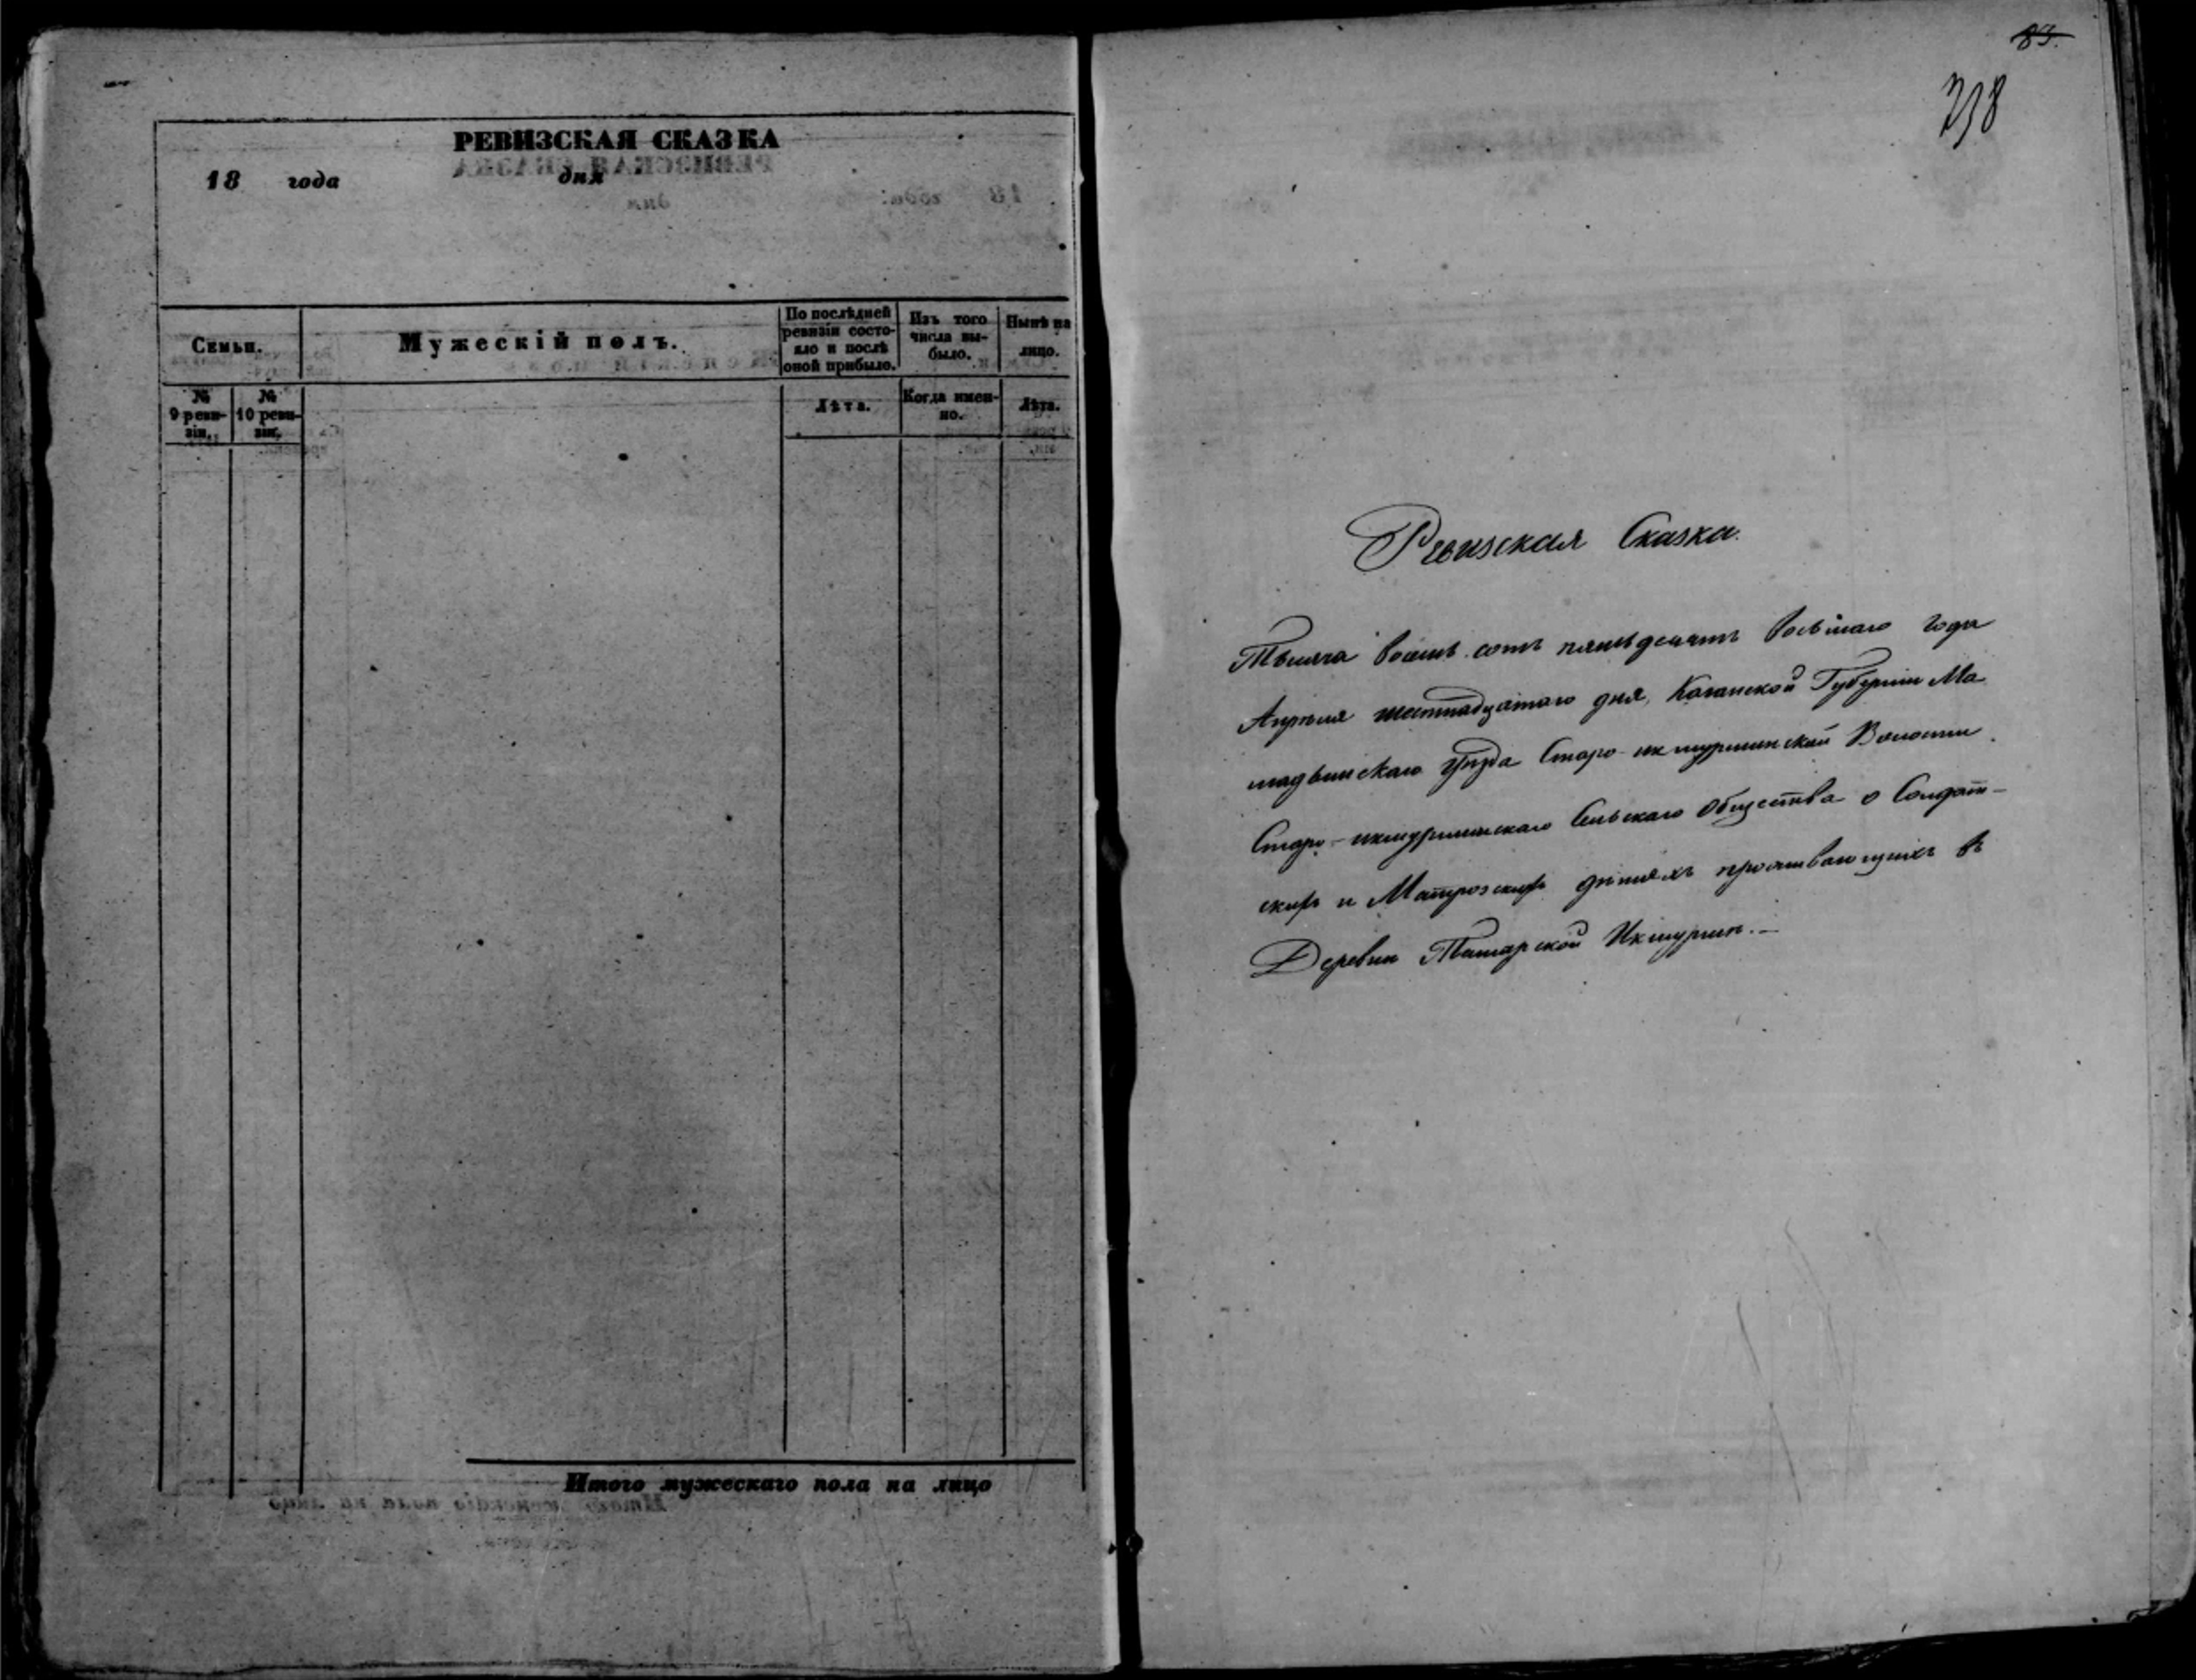 РЕВИЗСКАЯ СКАЗКА
18 года дня
Семьи.
Мужескій полъ.
По послѣдней ревизіи состояло и послѣ оной прибыло.
Изъ того числа выбыло.
Нынѣ на лицо.
№ 9 ревизіи.
№ 10 ревизіи.
Лѣта.
Когда именно.
Лѣта.
Итого мужескаго пола на лицо
83.
238
Ревизская Сказка.
Тысяча восемь сотъ пятьдесятъ восьмаго года
Апрѣля шестнадцатаго дня, Казанской Губерніи Ма
мадышскаго уѣзда Старо-икшурминской Волости
Старо-икшурминскаго Сельскаго Общества о Солдат-
скихъ и Матрозскихъ дѣтяхъ проживающихъ въ
Деревни Татарской Икшурмѣ.—